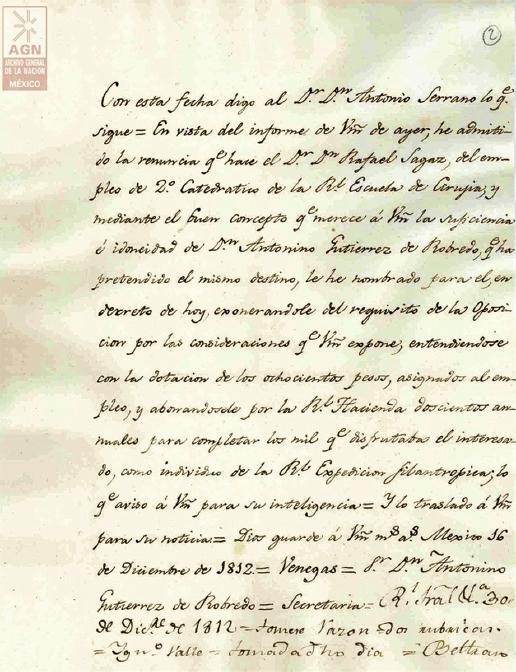 AGN
ARCHIVO GENERAL
DE LA NACIÓN
MÉXICO
2
Con esta fecha digo al Dr. Dn. Antonio Serrano lo qe.
sigue = En vista del informe de Vm de ayer, he admiti-
do la renuncia qe hace el Dr. Dn Rafael Sagaz, del em-
pleo de 2o. Catedratico de la Rl. Escuela de Cirujia; y
mediante el buen concepto qe merece á Vm la suficiencia
é idoneidad de Dn Antonino Gutierrez de Robredo, qe ha
pretendido el mismo destino, le he nombrado para el, en
decreto de hoy, exonerandole del requisito de la Oposi-
cion por las consideraciones qe Vm expone; entendiendose
con la dotacion de los ochocientos pesos, asignados al em-
pleo, y abonandosele por la Rl. Hacienda doscientos an-
nuales para completar los mil qe disfrutaba el interesa-
do, como individuo de la Rl. Expedicion filantropica; lo
qe aviso á Vm para su inteligencia = Y lo traslado á Vm
para su noticia = Dios guarde á Vm ms. as. Mexico 16
de Diciembre de 1812 = Venegas = Sr. Dn Antonino
Gutierrez de Robredo = Secretaria = Rl.
de Dice. de 1812 = tomose razon = dos rubricas
= Valle = tomada dho dia = Beltran